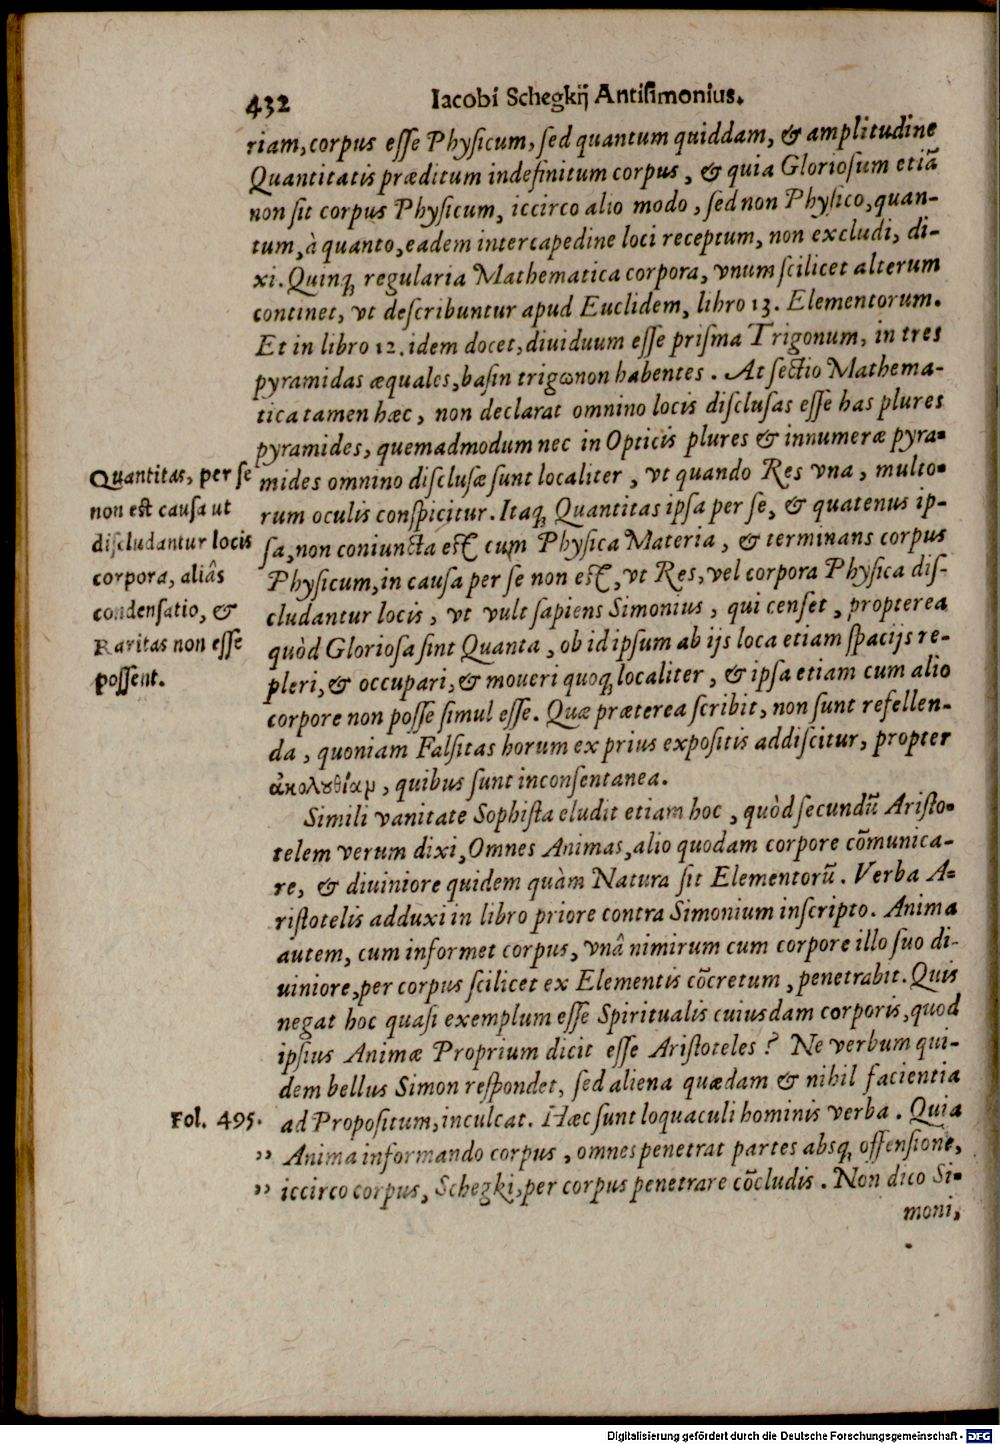 432 Iacobi Schegkij Antisimonius.
riam, corpus esse Physicum, sed quantum quiddam, & amplitudine
Quantitatis præditum indefinitum corpus, & quia Gloriosum etiã
non sit corpus Physicum, iccirco alio modo, sed non Physico, quan-
tum, à quanto, eadem intercapedine loci receptum, non excludi, di-
xi. Quinq; regularia Mathematica corpora, vnum scilicet alterum
continet, vt describuntur apud Euclidem, libro 13. Elementorum.
Et in libro 12. idem docet, diuiduum esse prisma Trigonum, in tres
pyramidas æquales, basin trigωnon habentes. At sectio Mathema-
tica tamen hæc, non declarat omnino locis disclusas esse has plures
pyramides, quemadmodum nec in Opticis plures & innumeræ pyra-
mides omnino disclusæ sunt localiter, vt quando Res vna, multo-
rum oculis conspicitur. Itaq; Quantitas ipsa per se, & quatenus ip-
sa, non coniuncta est cum Physica Materia, & terminans corpus
Physicum, in causa per se non est, vt Res, vel corpora Physica dis-
cludantur locis, vt vult sapiens Simonius, qui censet, propterea
quòd Gloriosa sint Quanta, ob id ipsum ab ijs loca etiam spacijs re-
pleri, & occupari, & moueri quoq; localiter, & ipsa etiam cum alio
corpore non posse simul esse. Quæ præterea scribit, non sunt refellen-
da, quoniam Falsitas horum ex prius expositis addiscitur, propter
ἀκολȣθίαμ, quibus sunt inconsentanea.
Quantitas, per se
non est causa ut
discludantur locis
corpora, aliâs
condensatio, &
Raritas non esse
possent.
Simili vanitate Sophista eludit etiam hoc, quòd secundũ Aristo-
telem verum dixi, Omnes Animas, alio quodam corpore cõmunica-
re, & diuiniore quidem quàm Natura sit Elementorũ. Verba A-
ristotelis adduxi in libro priore contra Simonium inscripto. Anima
autem, cum informet corpus, vnâ nimirum cum corpore illo suo di-
uiniore, per corpus scilicet ex Elementis cõcretum, penetrabit. Quis
negat hoc quasi exemplum esse Spiritualis cuiusdam corporis, quod
ipsius Animæ Proprium dicit esse Aristoteles? Ne verbum qui-
dem bellus Simon respondet, sed aliena quædam & nihil facientia
Fol. 495. ad Propositum, inculcat. Hæc sunt loquaculi hominis verba. Quia
,, Anima informando corpus, omnes penetrat partes absq; offensione,
,, iccirco corpus, Schegki, per corpus penetrare cõcludis. Non dico Si-
moni,
Digitalisierung gefördert durch die Deutsche Forschungsgemeinschaft - DFG